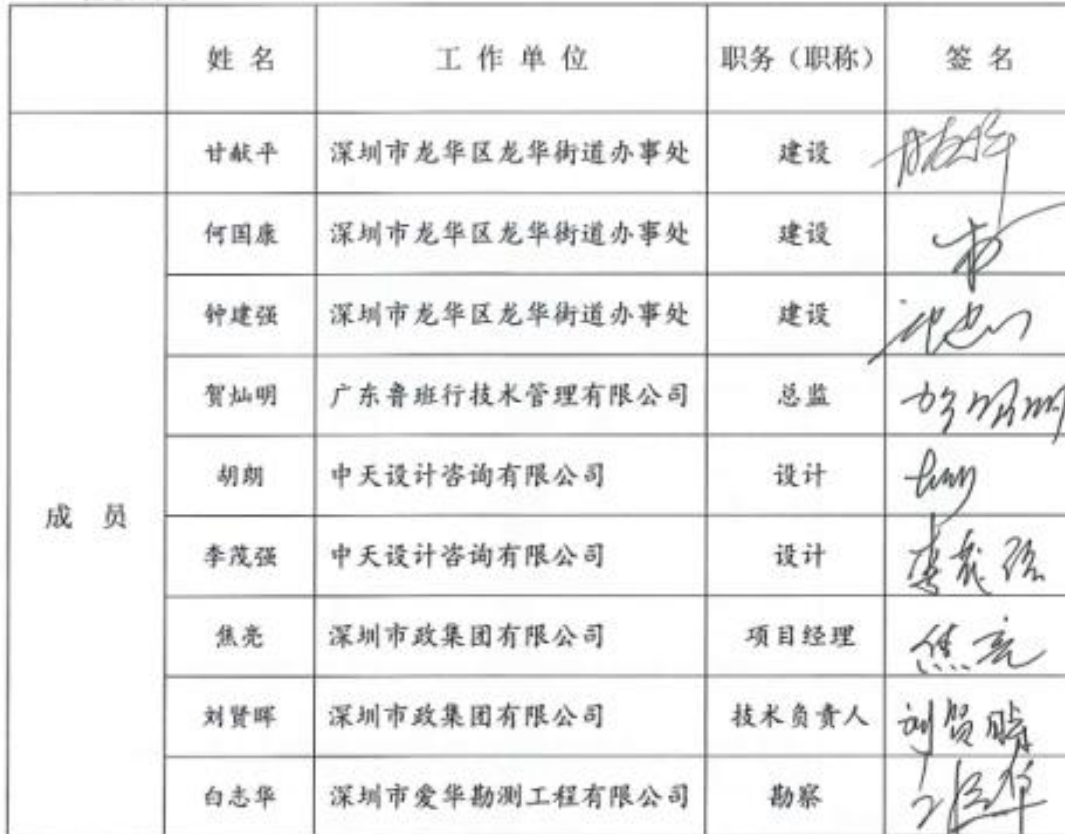 姓名 工作单位 职务（职称） 签名
甘献平 深圳市龙华区龙华街道办事处 建设
何国康 深圳市龙华区龙华街道办事处 建设
钟建强 深圳市龙华区龙华街道办事处 建设
贺灿明 广东鲁班行技术管理有限公司 总监
胡朗 中天设计咨询有限公司 设计
成员
李茂强 中天设计咨询有限公司 设计 李茂强
焦亮 深圳市政集团有限公司 项目经理 焦亮
刘贤晖 深圳市政集团有限公司 技术负责人 刘贤晖
白志华 深圳市爱华勘测工程有限公司 勘察